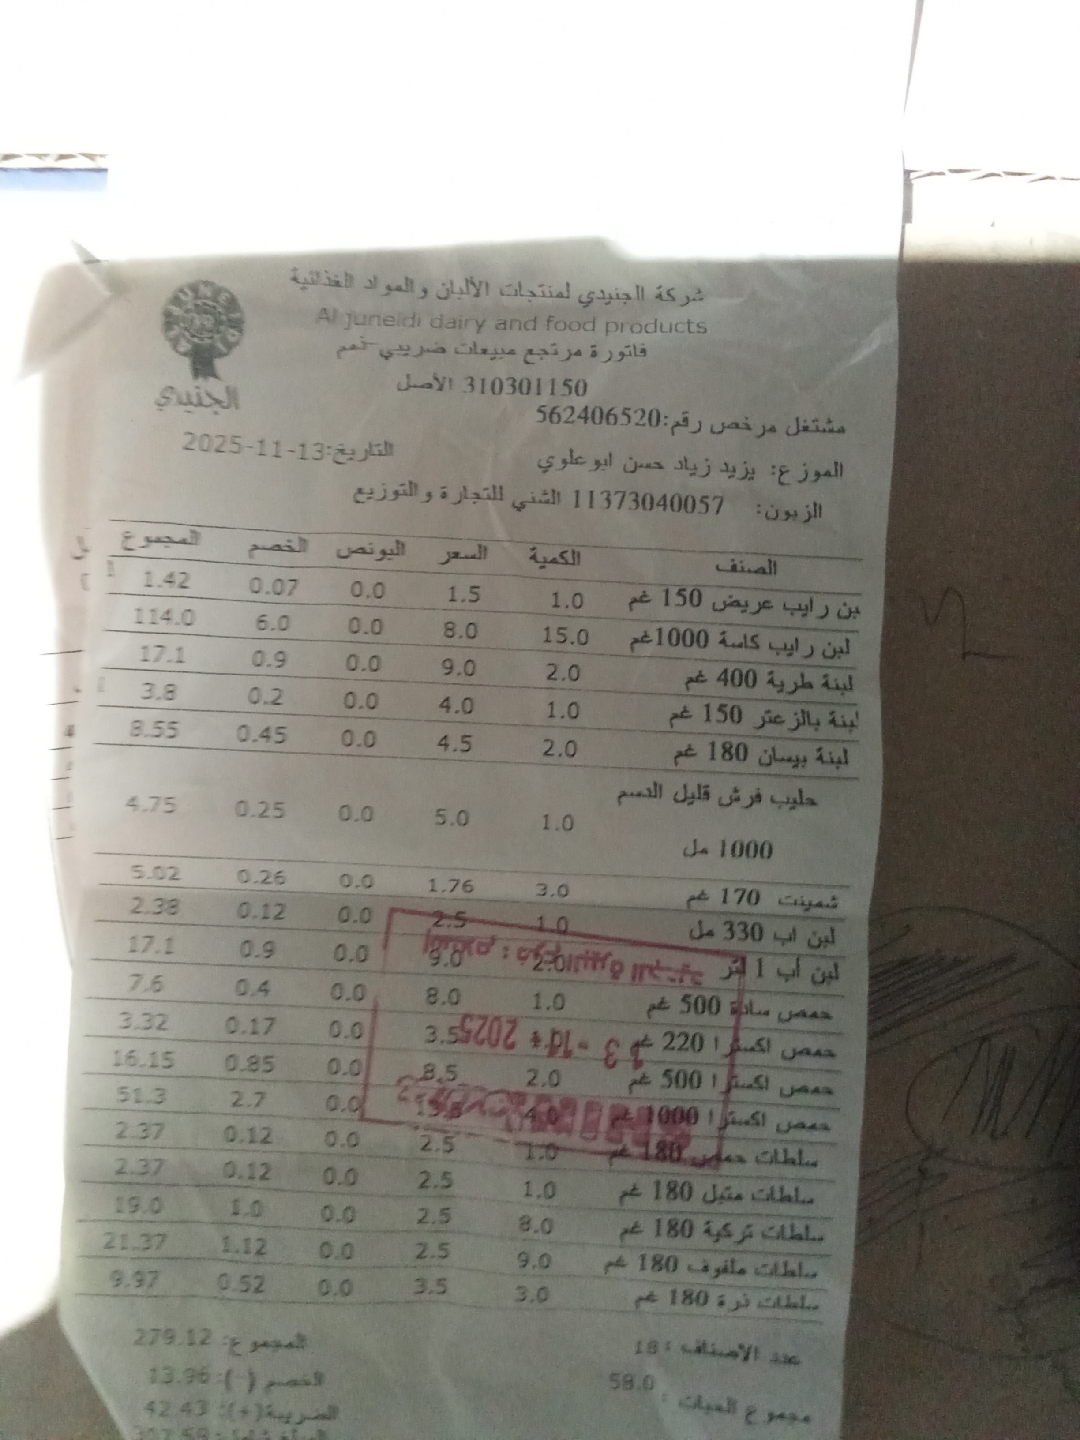 شركة الجنيدي لمنتجات الألبان والمواد الغذائية
Al juneidi dairy and food products
الجنيدي
فاتورة مرتجع مبيعات ضريبي-ذمم
310301150 الأصل
مشتغل مرخص رقم:562406520
التاريخ:2025-11-13
الموزع: يزيد زياد حسن ابو علوي
الزبون: 11373040057 الشني للتجارة والتوزيع
الصنف الكمية السعر البونص الخصم المجموع
بن رايب عريض 150 غم 1.0 1.5 0.0 0.07 1.42
لبن رايب كاسة 1000غم 15.0 8.0 0.0 6.0 114.0
لبنة طرية 400 غم 2.0 9.0 0.0 0.9 17.1
لبنة بالزعتر 150 غم 1.0 4.0 0.0 0.2 3.8
لبنة بيسان 180 غم 2.0 4.5 0.0 0.45 8.55
حليب فرش قليل الدسم
1000 مل 1.0 5.0 0.0 0.25 4.75
شمينت 170 غم 3.0 1.76 0.0 0.26 5.02
لبن اب 330 مل 1.0 2.5 0.0 0.12 2.38
لبن اب 1 لتر 2.0 9.0 0.0 0.9 17.1
حمص سادة 500 غم 1.0 8.0 0.0 0.4 7.6
حمص اكسترا 220 غم 3.5 0.0 0.17 3.32
حمص اكسترا 500 غم 2.0 8.5 0.0 0.85 16.15
حمص اكسترا 1000 غم 4.0 0.0 2.7 51.3
سلطات حمص 180 غم 1.0 2.5 0.0 0.12 2.37
سلطات متبل 180 غم 1.0 2.5 0.0 0.12 2.37
سلطات تركية 180 غم 8.0 2.5 0.0 1.0 19.0
سلطات ملفوف 180 غم 9.0 2.5 0.0 1.12 21.37
سلطات ذرة 180 غم 3.0 3.5 0.0 0.52 9.97
عدد الأصناف : 18 المجموع: 279.12
مجموع الحبات : 58.0 الخصم (-): 13.96
الضريبة(+): 42.43